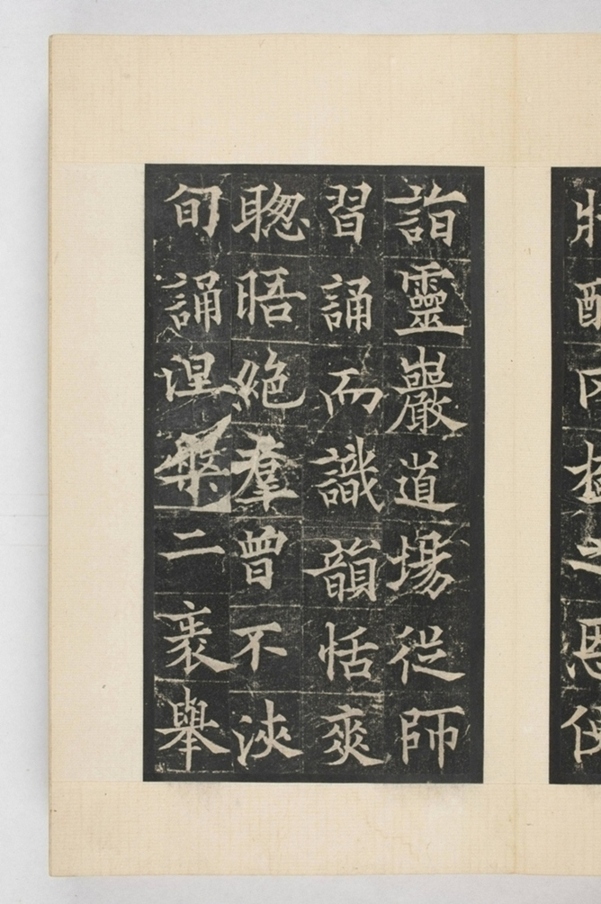 詣靈巖道場從師
習誦而識韻恬爽
聦晤絶羣曾不浹
旬誦涅槃二袠舉